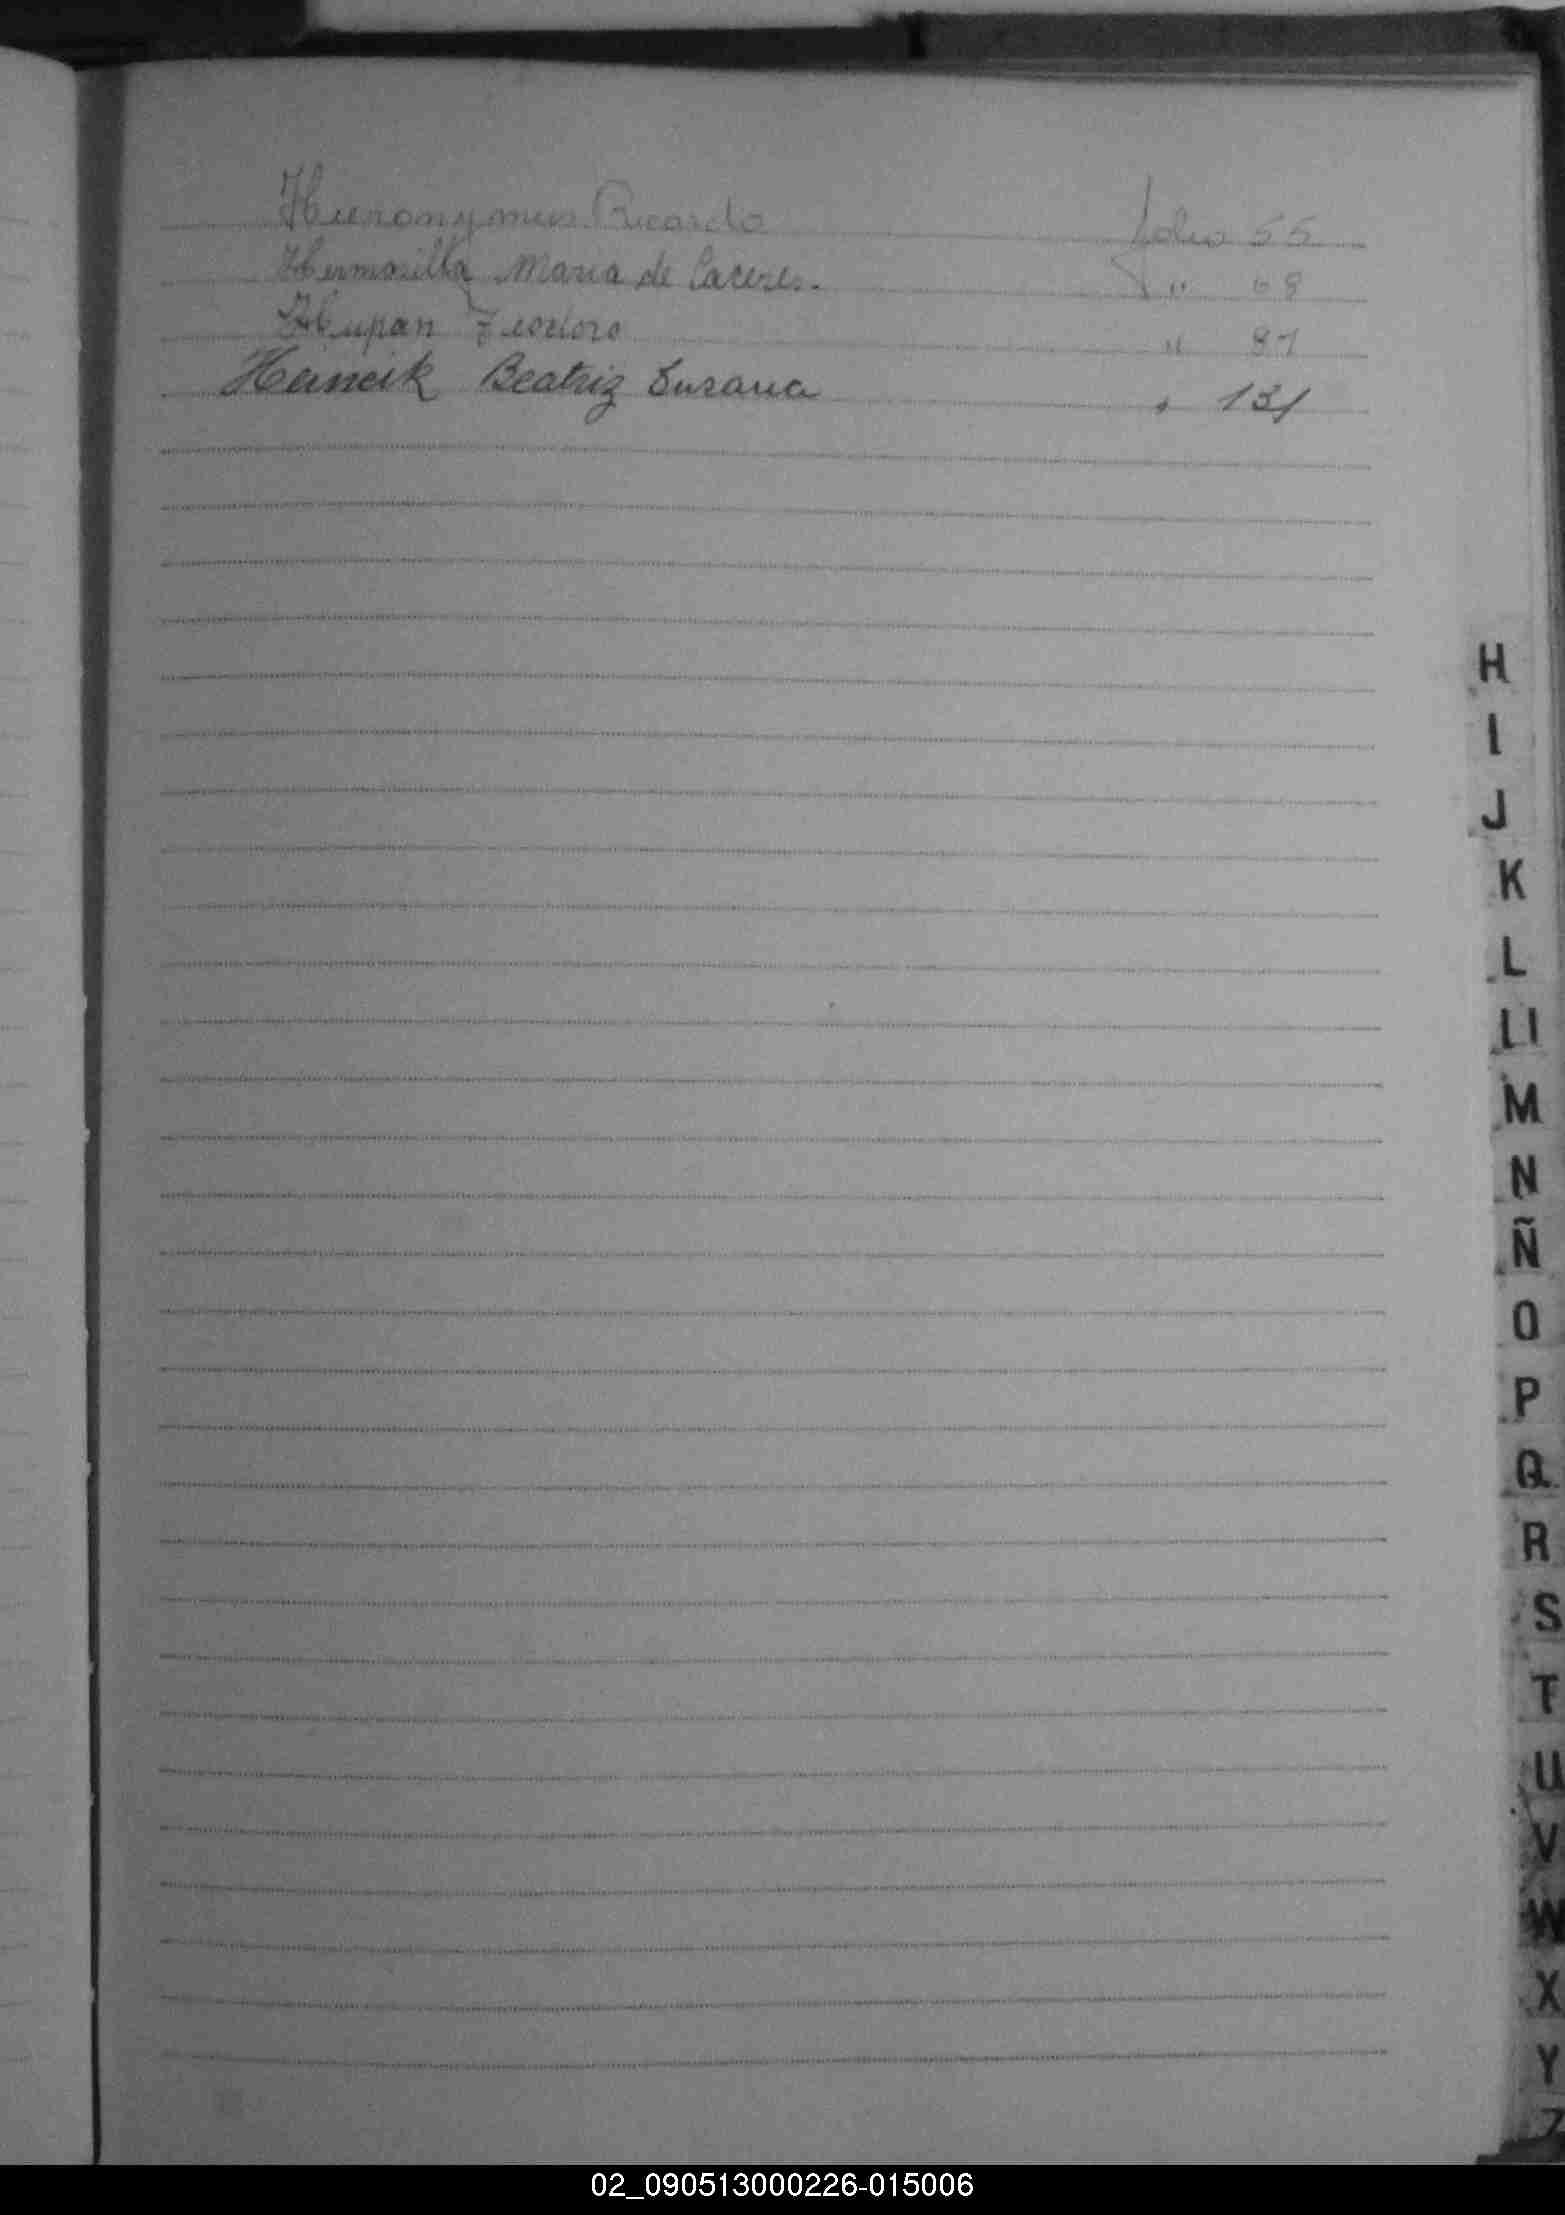 Hieronymus Ricardo folio 55
Hermosilla Maria de Caceres. " 68
Hupan Teodoro " 87
Heincik Beatriz Susana " 131
H
I
J
K
L
Ll
M
N
Ñ
O
P
Q
R
S
T
U
V
W
X
Y
Z
02_090513000226-015006